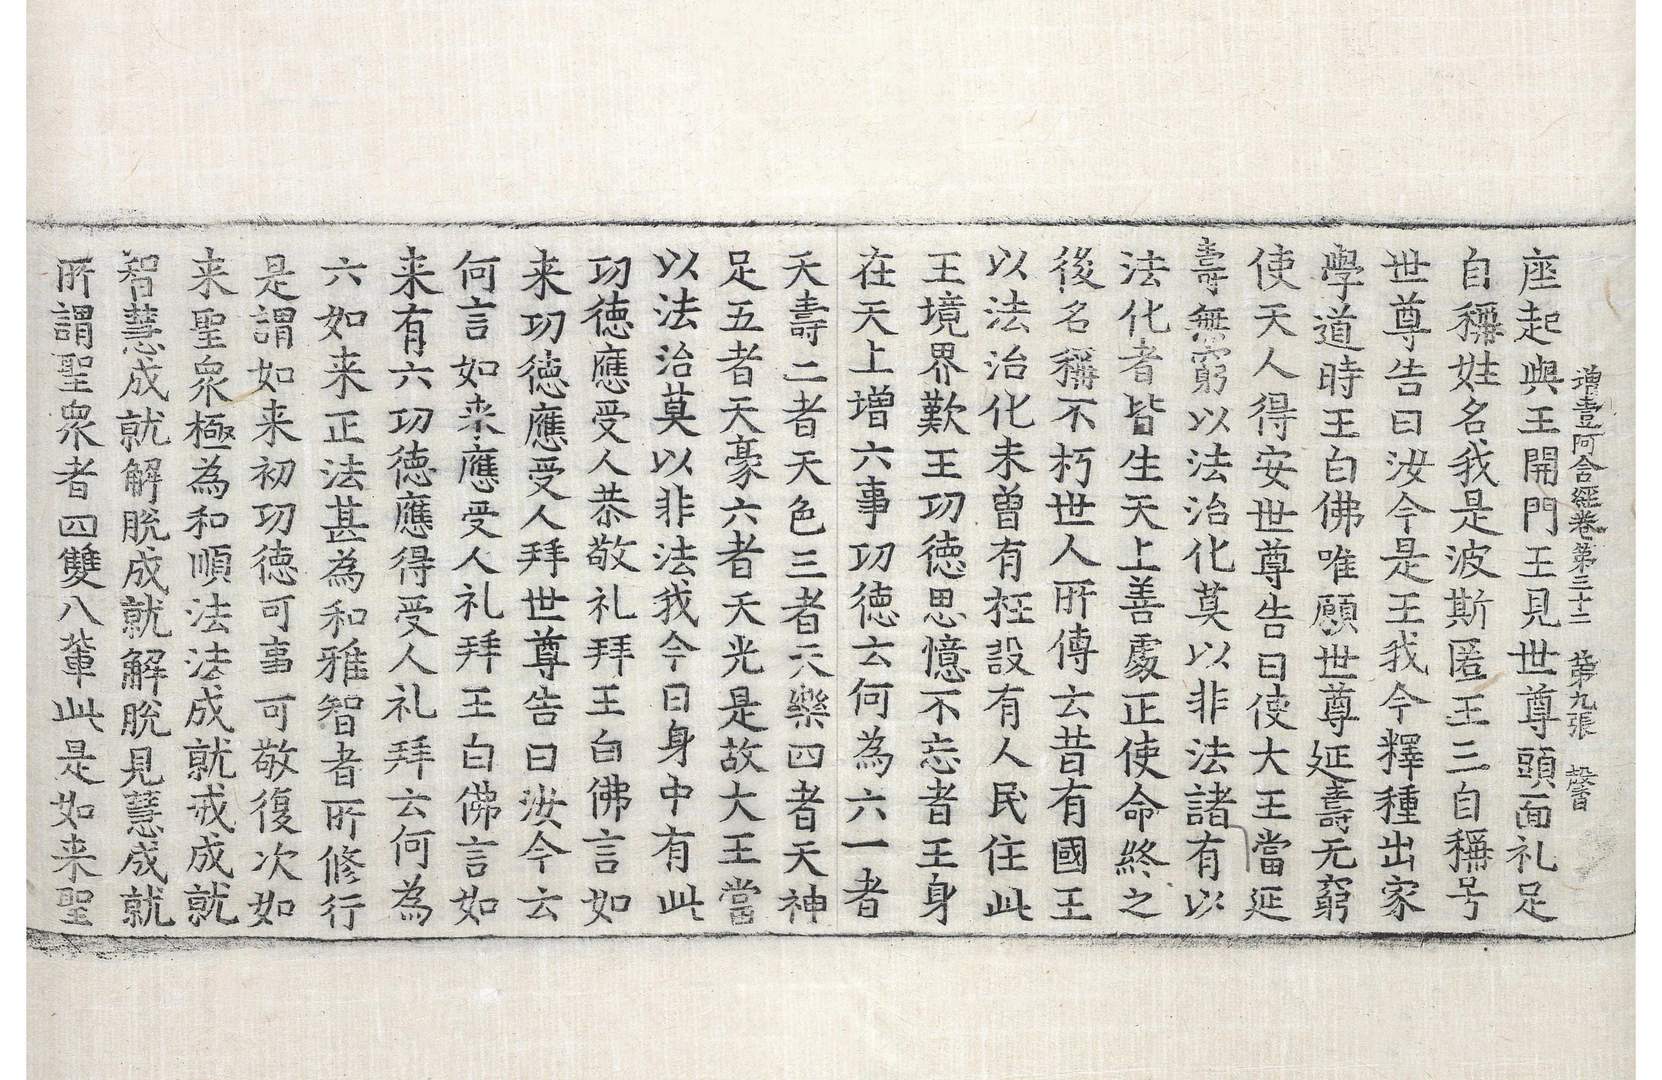 增壹阿含經卷第三十二 第九張 罄
座起與王開門王見世尊頭面礼足
自稱姓名我是波斯匿王三自稱号
世尊告曰汝今是王我今釋種出家
學道時王白佛唯願世尊延壽无窮
使天人得安世尊告曰使大王當延
壽無窮以法治化莫以非法諸有以
法化者皆生天上善處正使命終之
後名稱不朽世人所傳云昔有國王
以法治化未曾有抂設有人民住此
王境界歎王功德思憶不忘者王身
在天上增六事功德云何為六一者
天壽二者天色三者天樂四者天神
足五者天豪六者天光是故大王當
以法治莫以非法我今日身中有此
功德應受人恭敬礼拜王白佛言如
来功德應受人拜世尊告曰汝今云
何言如来應受人礼拜王白佛言如
来有六功德應得受人礼拜云何為
六如来正法甚為和雅智者所修行
是謂如来初功德可事可敬復次如
来聖衆極為和順法法成就戒成就
智慧成就解脫成就解脫見慧成就
所謂聖衆者四雙八輩此是如来聖